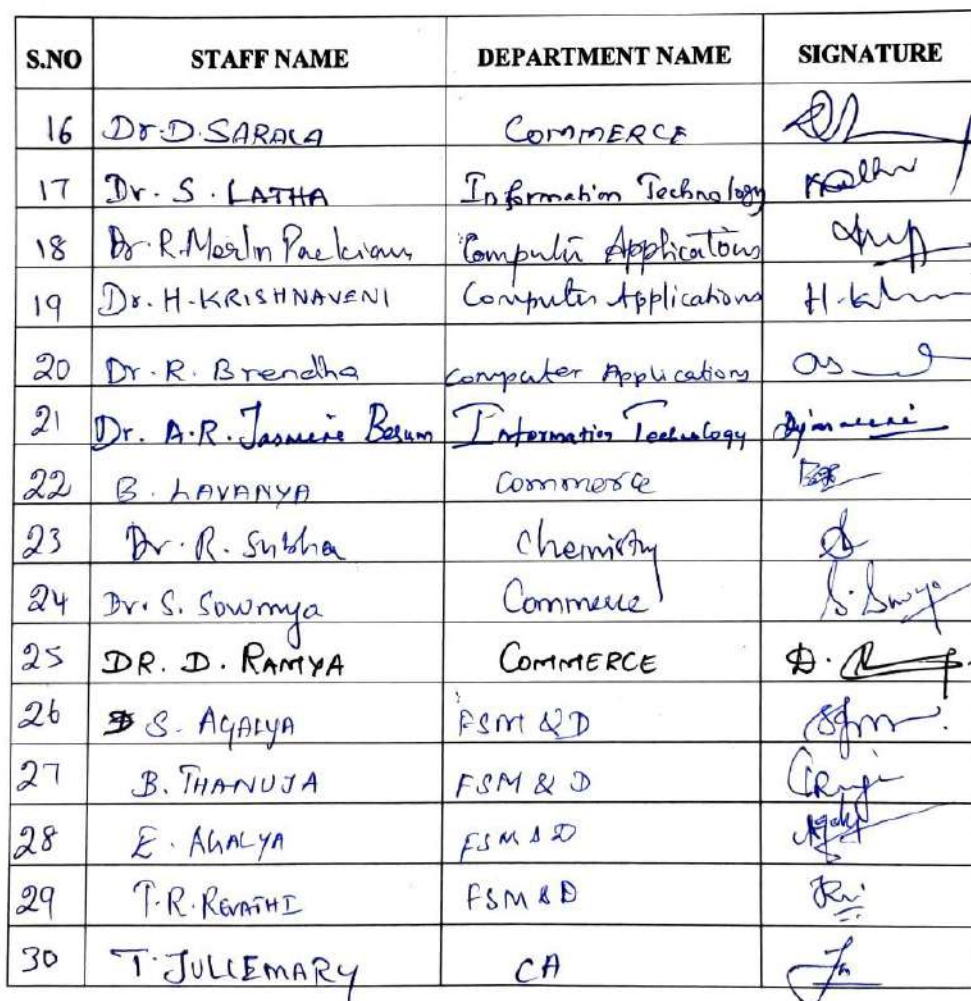 S.NO STAFF NAME DEPARTMENT NAME SIGNATURE
16 Dr.D.SARALA COMMERCE
17 Dr. S. LATHA Information Technology
18 Dr. R. Merlin Packiam Computer Applications
19 Dr. H. KRISHNAVENI Computer Applications H.
20 Dr. R. Brendha Computer Applications
21 Dr. A.R. Jasmine Begum Information Technology
22 B. LAVANYA Commerce
23 Dr. R. Subha Chemistry
24 Dr. S. Sowmya Commerce
25 DR. D. RAMYA COMMERCE D.
26 S. AGALYA FSM & D
27 B. THANUJA FSM & D
28 E. AGALYA FSM & D
29 T.R. REVATHI FSM & D
30 T. JULIEMARY CA